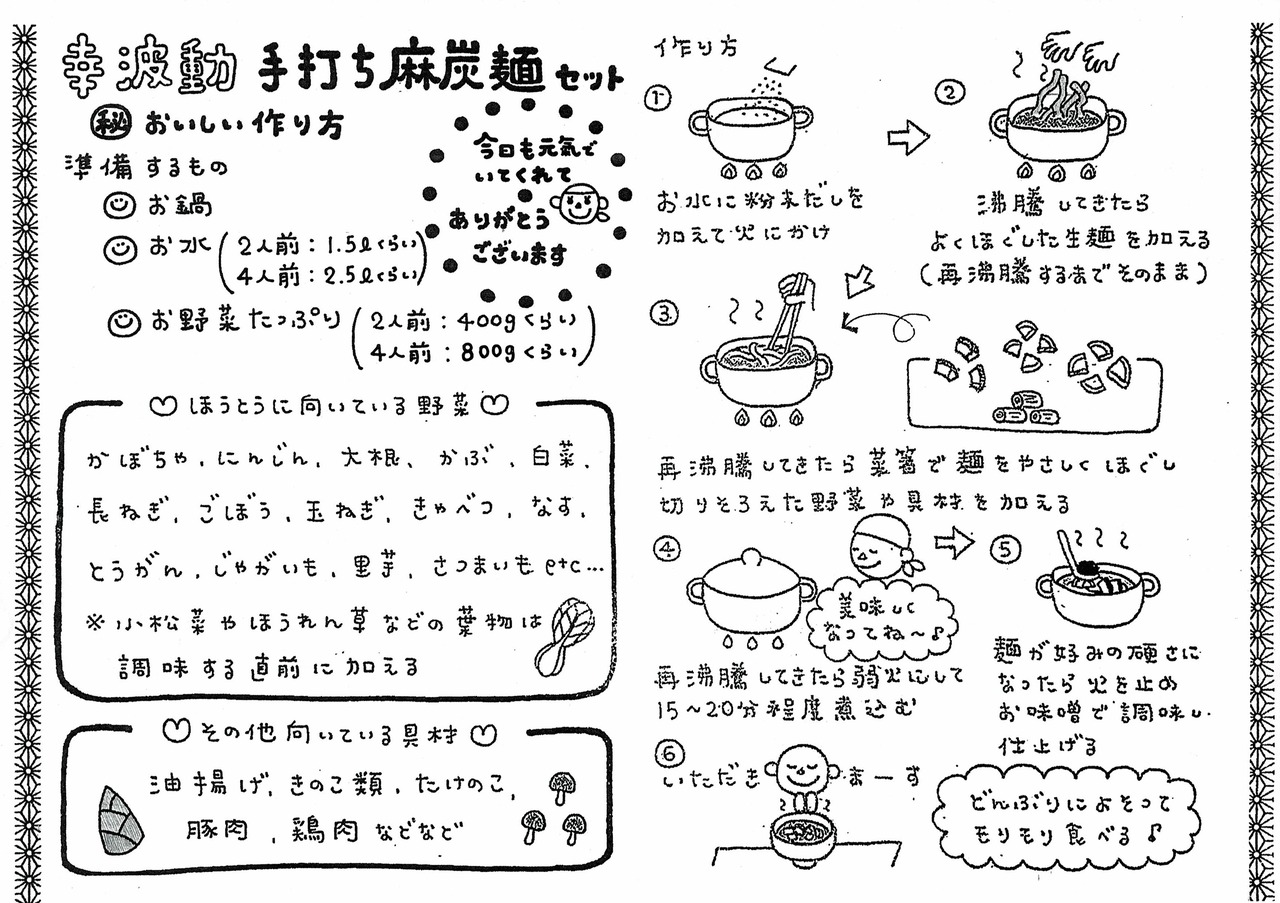 幸波動 手打ち麻炭麺セット
㊙ おいしい作り方
準備するもの
お鍋
お水(2人前:1.5ℓくらい
4人前:2.5ℓくらい)
お野菜たっぷり(2人前:400gくらい
4人前:800gくらい)
今日も元気で
いてくれて
ありがとう
ございます
♡ほうとうに向いている野菜♡
かぼちゃ、にんじん、大根、かぶ、白菜、
長ねぎ、ごぼう、玉ねぎ、きゃべつ、なす、
とうがん、じゃがいも、里芋、さつまいもetc…
※小松菜やほうれん草などの葉物は
調味する直前に加える
♡その他向いている具材♡
油揚げ、きのこ類、たけのこ、
豚肉、鶏肉などなど
作り方
①
お水に粉末だしを
加えて火にかけ
②
沸騰してきたら
よくほぐした生麺を加える
(再沸騰するまでそのまま)
③
再沸騰してきたら菜箸で麺をやさしくほぐし
切りそろえた野菜や具材を加える
④
美味しく
なってね〜♪
再沸騰してきたら弱火にして
15〜20分程度煮込む
⑤
麺が好みの硬さに
なったら火を止め
お味噌で調味し
仕上げる
⑥
いただきまーす
どんぶりによそって
モリモリ食べる♪